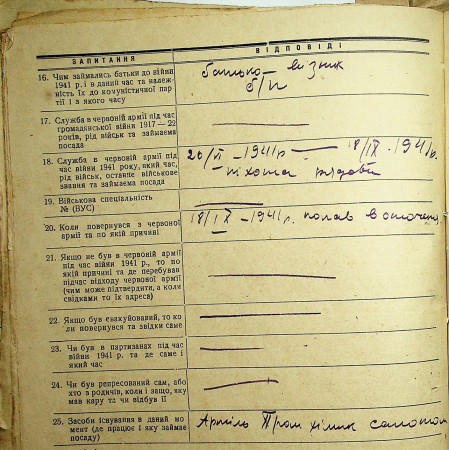 ЗАПИТАННЯ
ВІДПОВІДІ
16. Чим займались батьки до війни
1941 р. і в даний час та належ-
ність їх до комуністичної пар-
тії і з якого часу
батько — візник
б/п
17. Служба в червоній армії під час
громадянської війни 1917—22
років, рід військ та займаєма
посада
18. Служба в червоній армії під
час війни 1941 року, який час,
рід військ, останнє військове
звання та займаєма посада
20/VI — 1941 р — 18/IX - 1941 р.
піхота рядови
19. Військова спеціальність
№ (ВУС)
20. Коли повернувся з червоної
армії та по якій причині
18/IX — 1941 р. попав в оточен
21. Якщо не був в червоній армії
під час війни 1941 р., то по
якій причині та де перебував
підчас відходу червоної армії
(чим може підтвердити, а коли
свідками то їх адреса)
22. Якщо був евакуйований, то ко-
ли повернувся та звідки саме
23. Чи був в партизанах під час
війни 1941 р. та де саме і
який час
24. Чи був репресований сам, або
хто з родичів, коли і защо, яку
мав кару та чи відбув її
25. Засоби існування в даний мо-
мент (де працює і яку займає
посаду)
Артіль Пром хімик